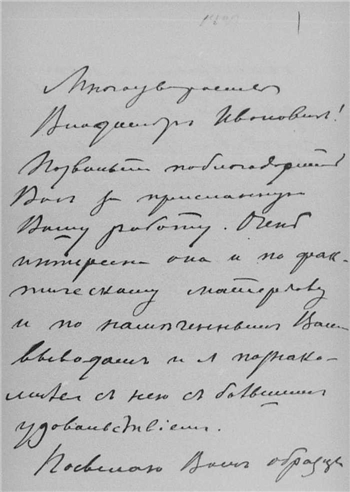 Многоуважаемый
Владимиръ Ивановичъ!
Позвольте поблагодарить
Васъ за присланную
Вашу работу. Очень
интересна она и по фак-
тическому матерьялу
и по намѣченнымъ Вами
выводамъ и я познако-
мился съ нею съ большимъ
удовольствіемъ.
Посылаю Вамъ образцы